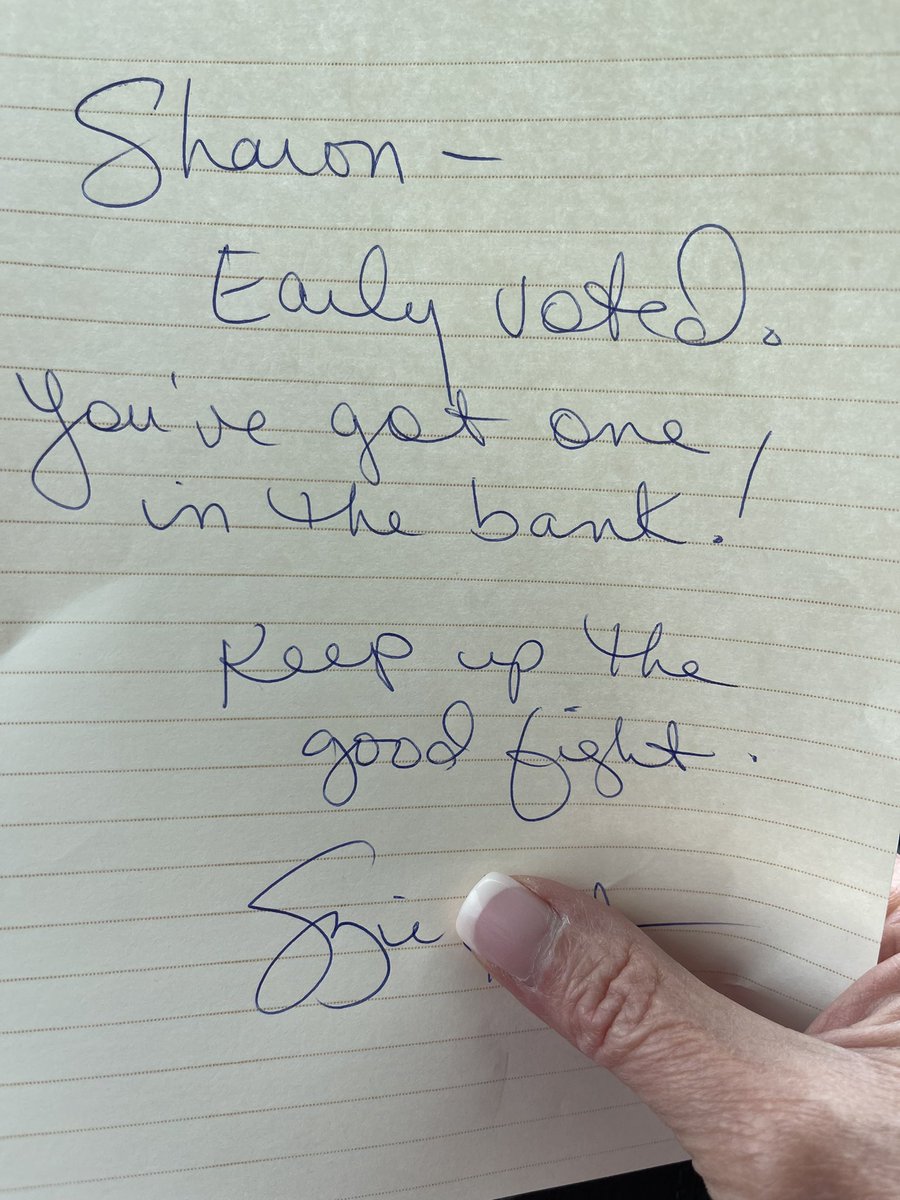 Sharon –
Early voted.
You've got one
in the bank!
Keep up the
good fight.